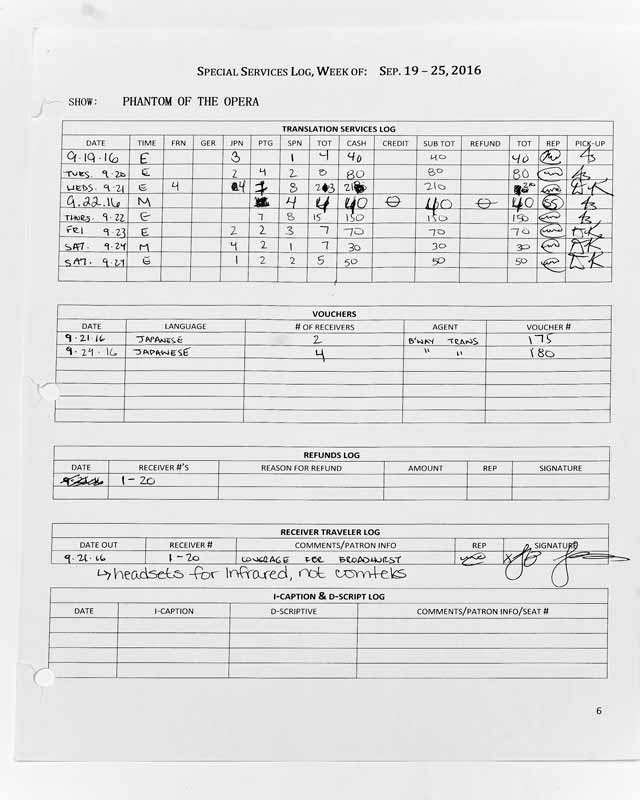 SPECIAL SERVICES LOG, WEEK OF: SEP. 19 – 25, 2016
SHOW: PHANTOM OF THE OPERA
TRANSLATION SERVICES LOG
DATE TIME FRN GER JPN PTG SPN TOT CASH CREDIT SUB TOT REFUND TOT REP PICK-UP
9.19.16 E 3 1 4 40 40 40
TUES. 9.20 E 2 4 2 8 80 80 80
WEDS. 9.21 E 4 8 210
9.22.16 M 4 4 40 40 40 SS
THURS. 9.22 E 7 8 15 150 150 150
FRI 9.23 E 2 2 3 7 70 70 70
SAT. 9.24 M 4 2 1 7 30 30 30
SAT. E 1 2 2 5 50 50 50
VOUCHERS
DATE LANGUAGE # OF RECEIVERS AGENT VOUCHER #
9.21.16 JAPANESE 2 B'WAY TRANS 175
9.24.16 JAPANESE 4 " " 180
REFUNDS LOG
DATE RECEIVER #'S REASON FOR REFUND AMOUNT REP SIGNATURE
1-20
RECEIVER TRAVELER LOG
DATE OUT RECEIVER # COMMENTS/PATRON INFO REP SIGNATURE
9.21.16 1-20 COVERAGE FOR BROADHURST X
↳ headsets for Infrared, not comteks
I-CAPTION & D-SCRIPT LOG
DATE I-CAPTION D-SCRIPTIVE COMMENTS/PATRON INFO/SEAT #
6